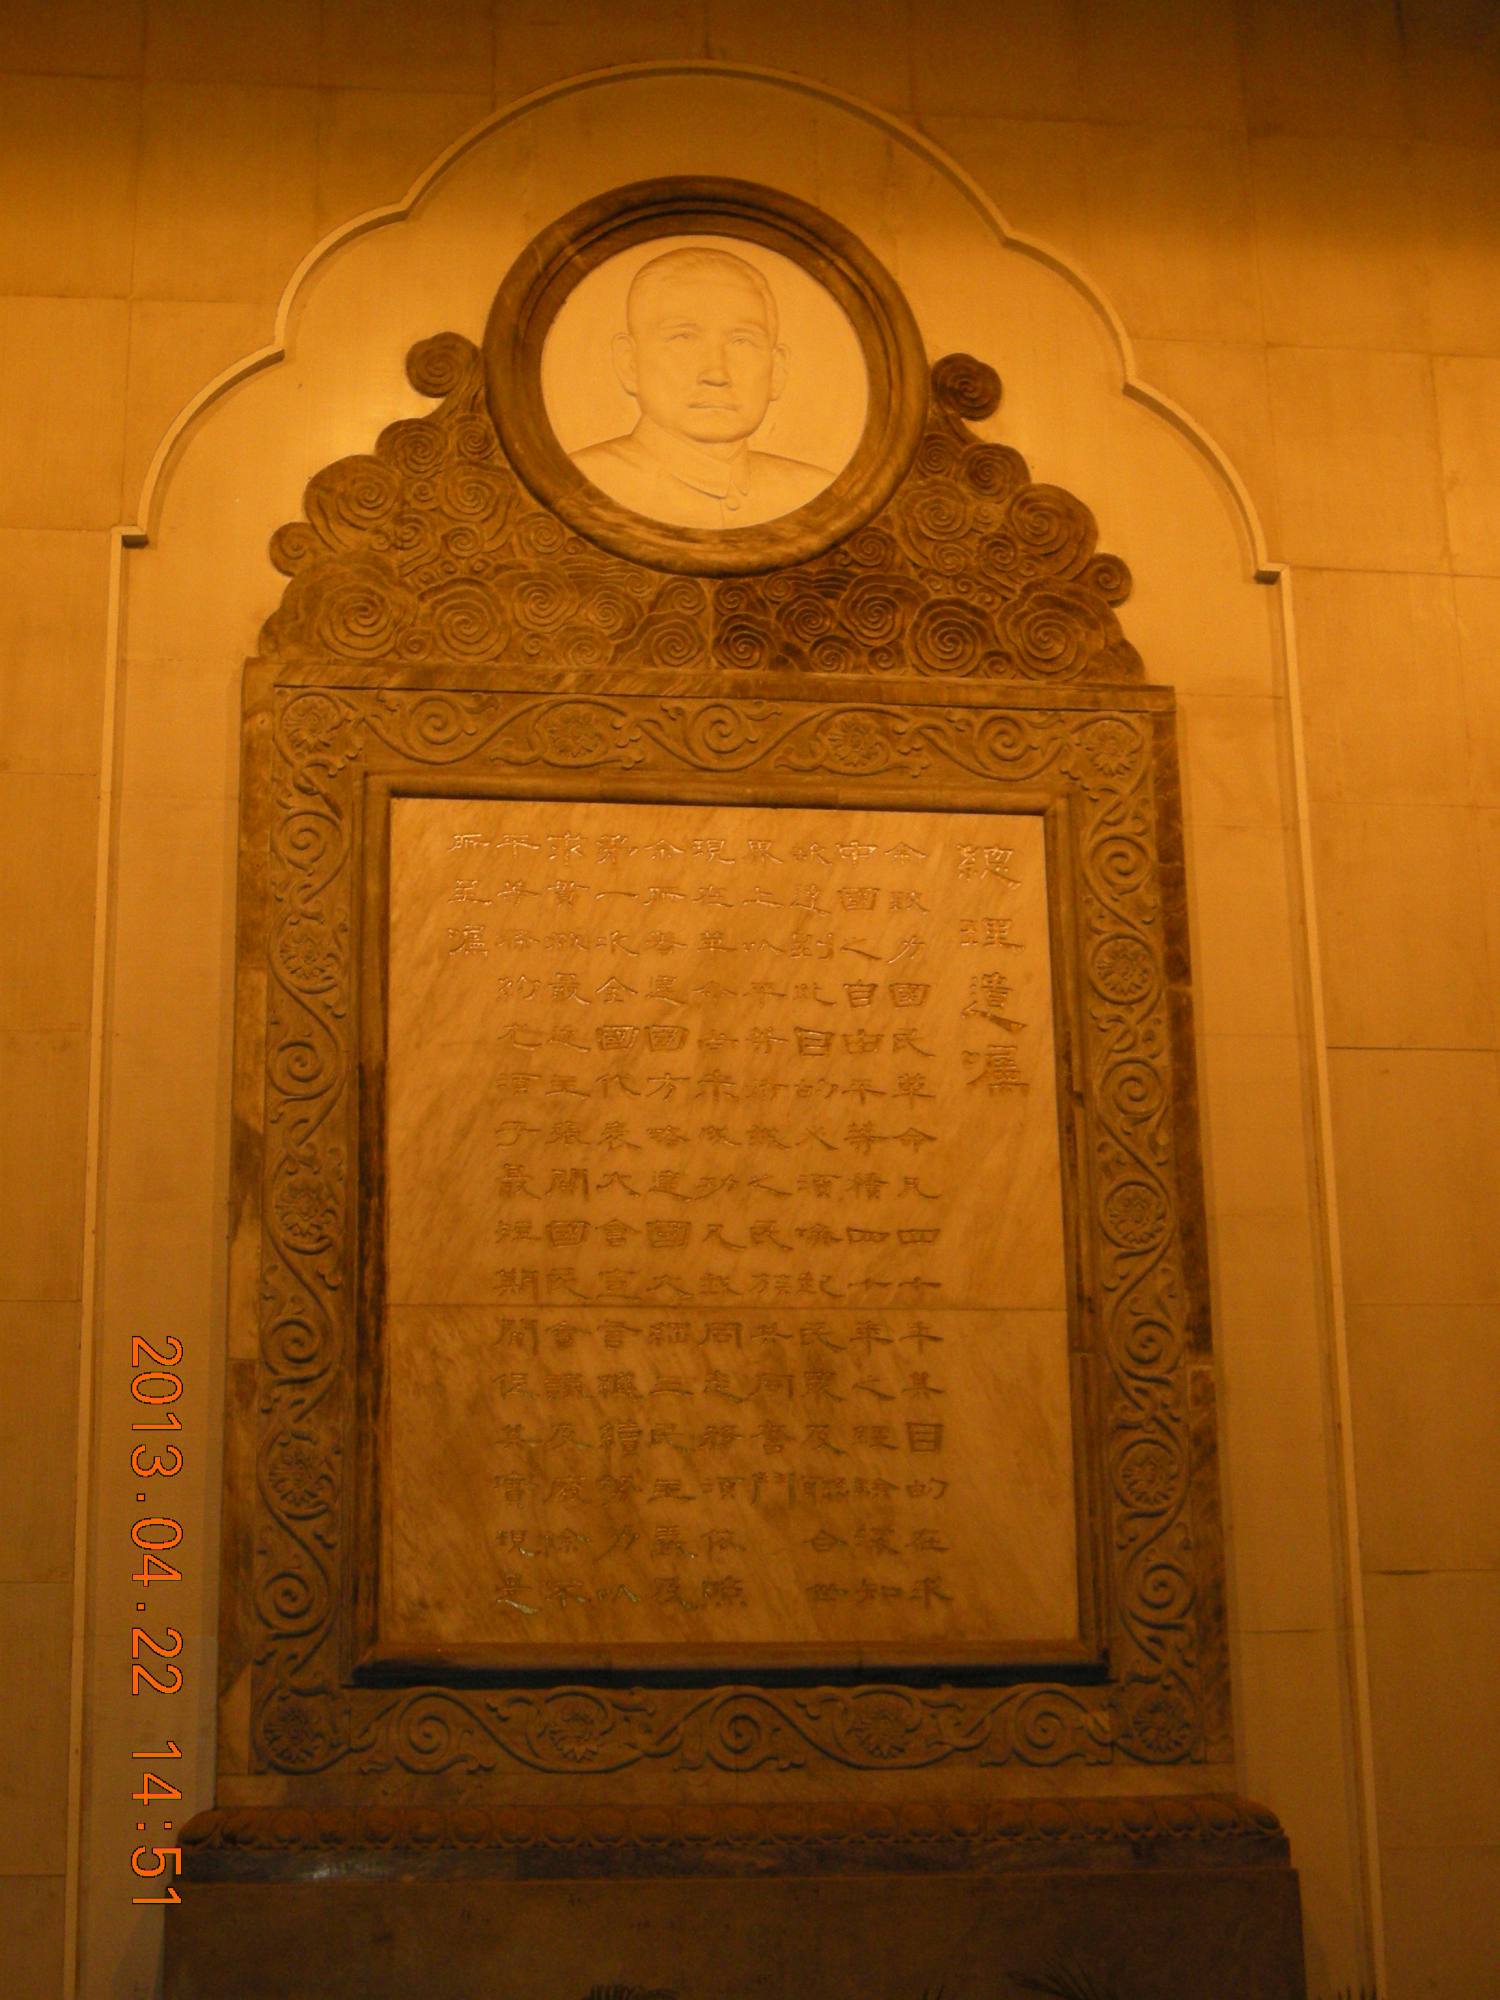 總理遺囑
余致力國民革命凡四十年其目的在求
中國之自由平等積四十年之經驗深知
欲達到此目的必須喚起民眾及聯合世
界上以平等待我之民族共同奮鬥
現在革命尚未成功凡我同志務須依照
余所著建國方略建國大綱三民主義及
第一次全國代表大會宣言繼續努力以
求貫徹最近主張開國民會議及廢除不
平等條約尤須于最短期間促其實現是
所至囑
2013.04.22 14:51